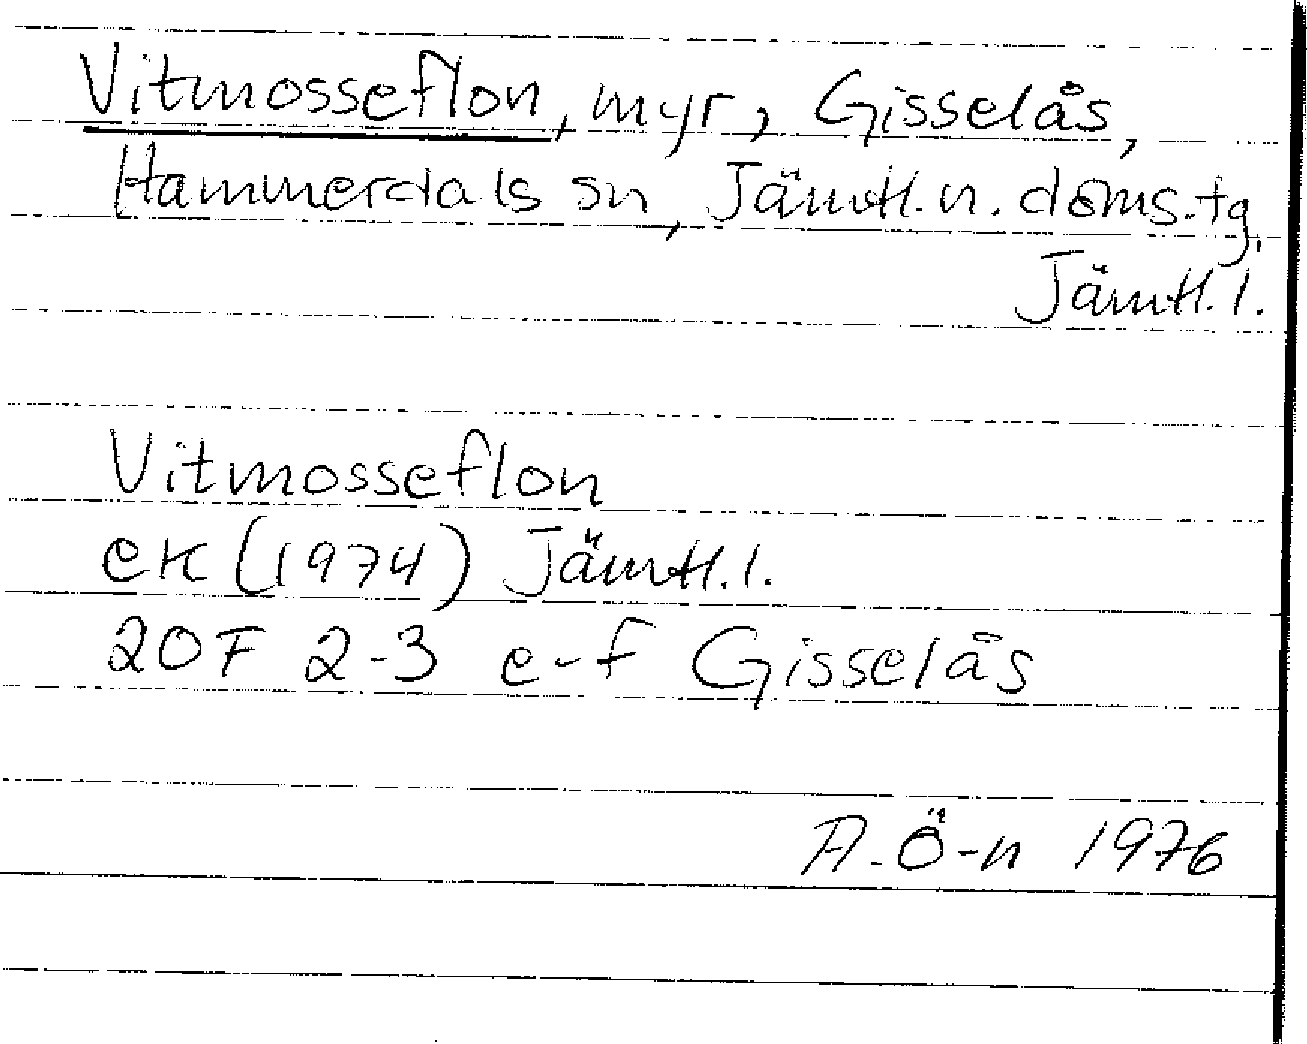 Vitmosseflon, myr, Gisselås,
Hammerdals sn, Jämtl. n. doms. tg,
Jämtl. l.
Vitmosseflon
ek (1974) Jämtl. l.
20F 2-3 e-f Gisselås
A. Ö-n 1976